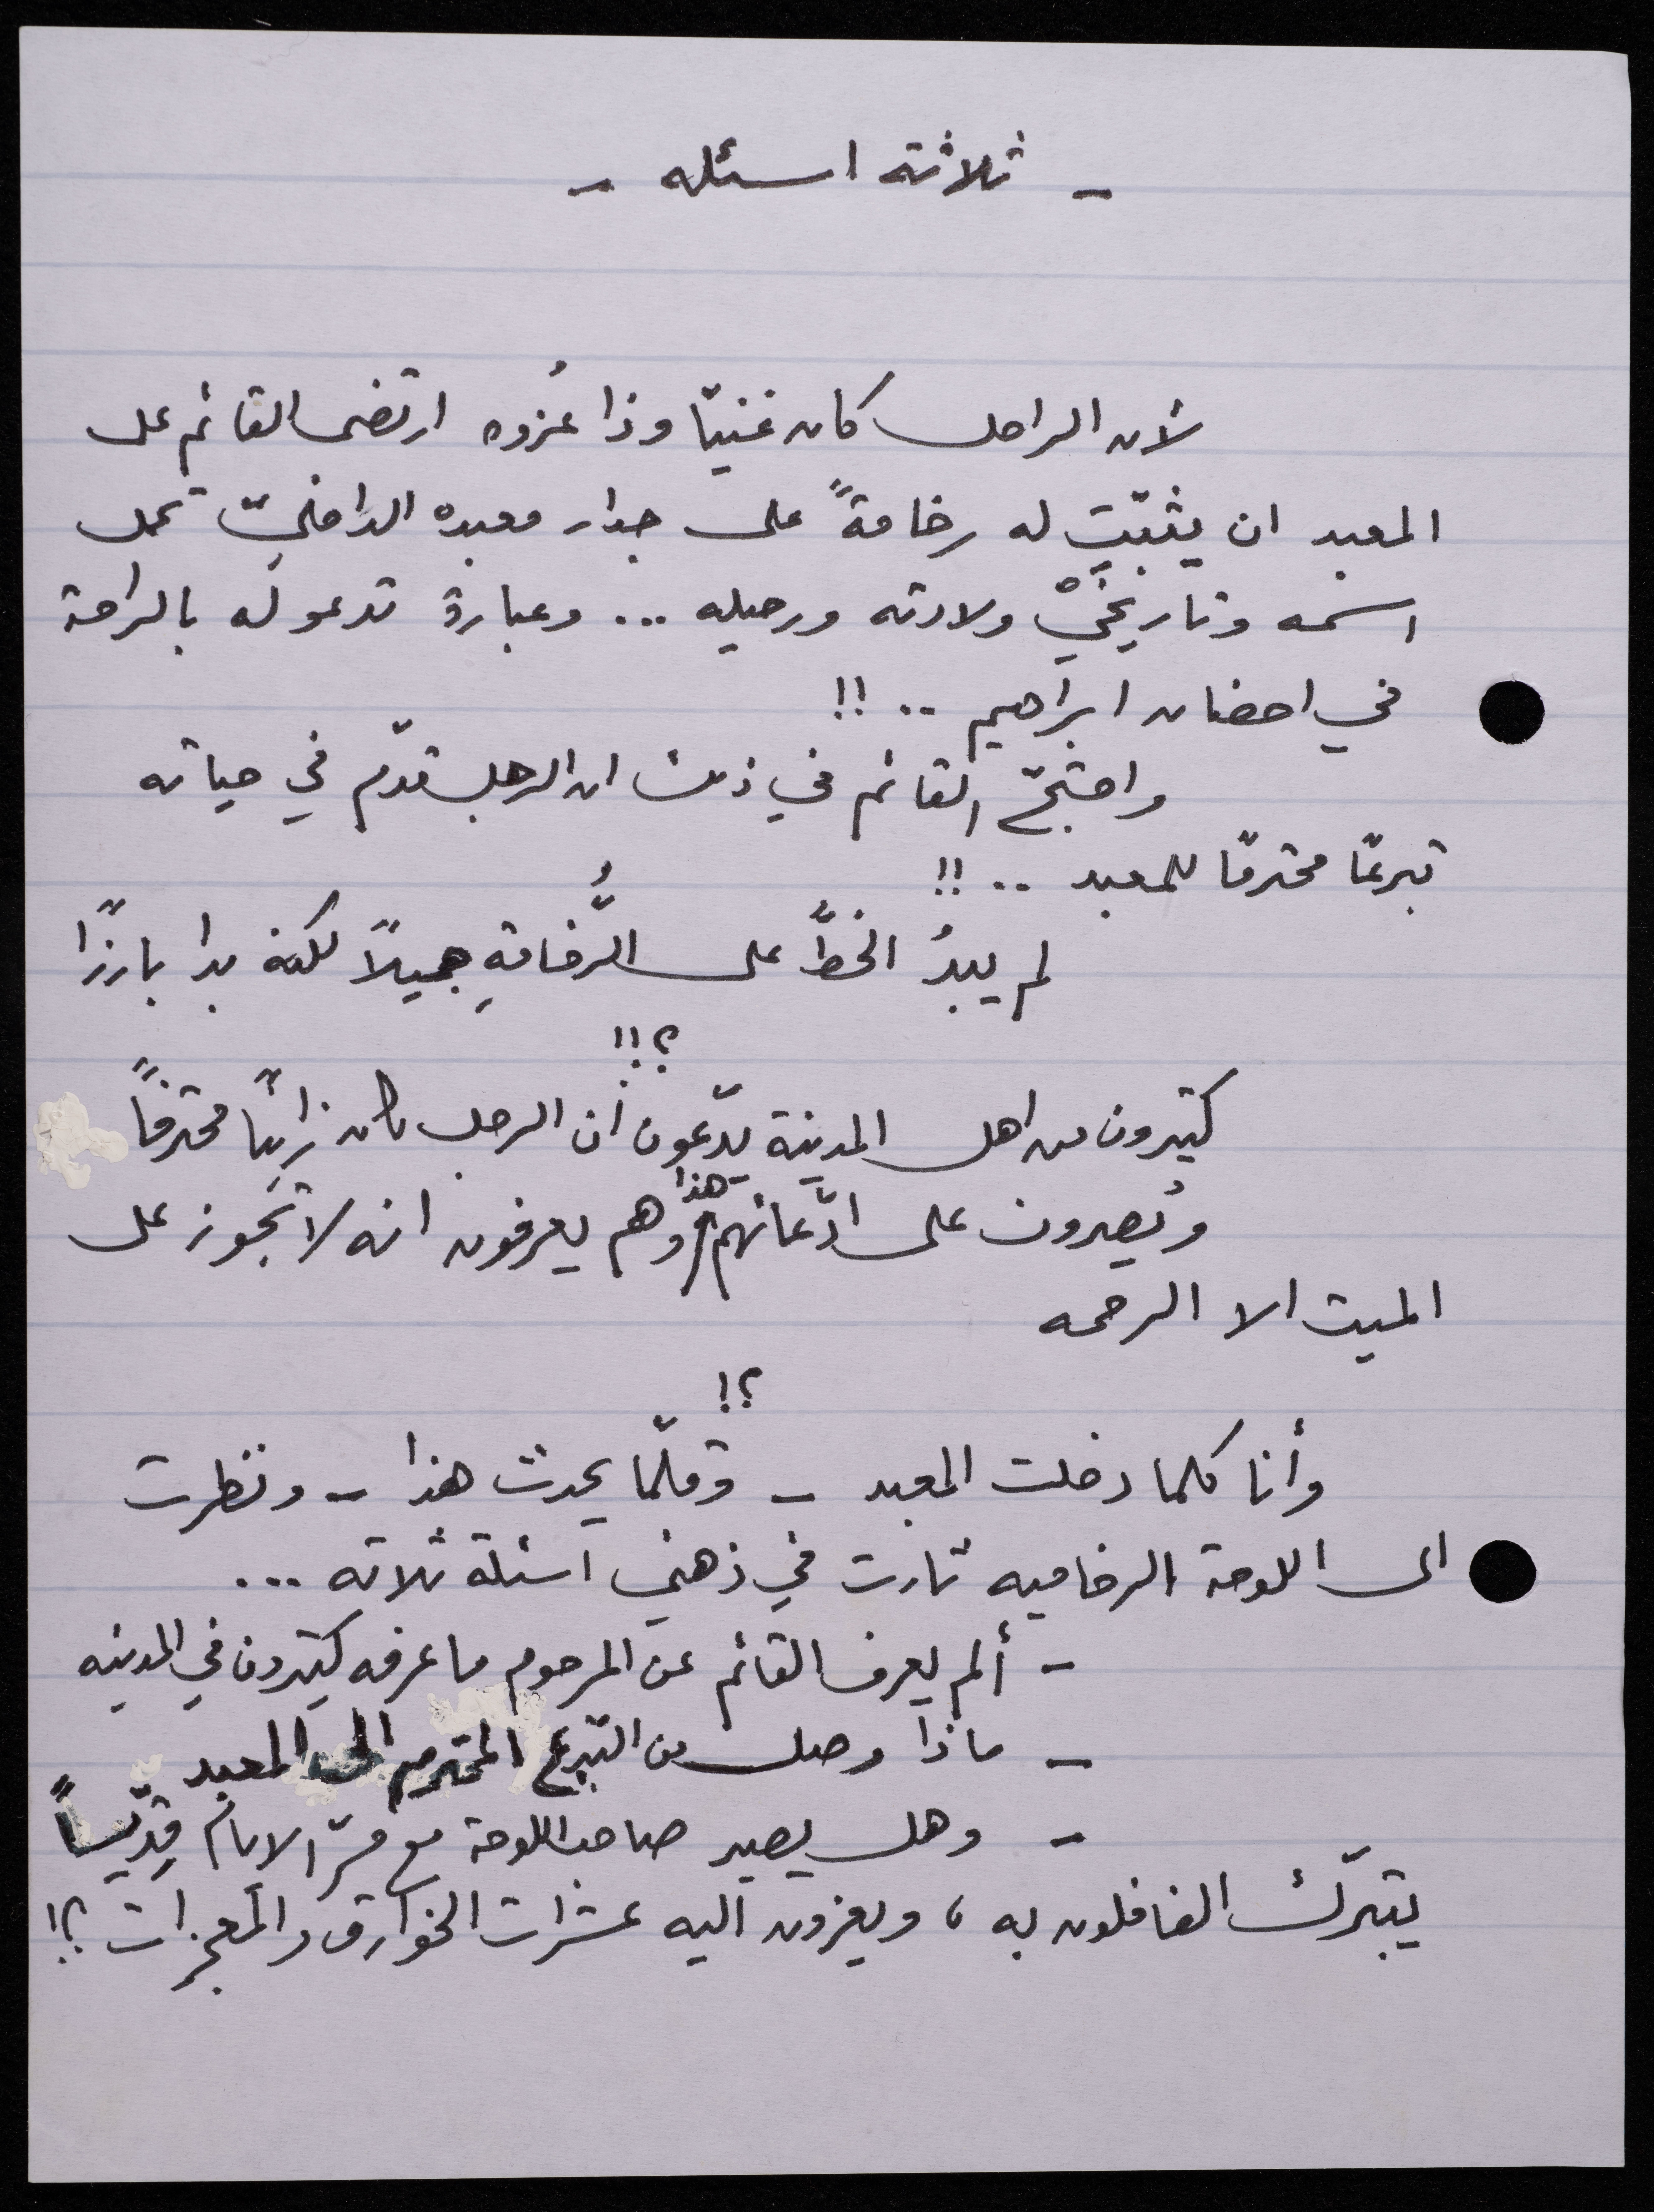 - ثلاثة اسئله -
لأن الراحل كان غنيّا وذا عُزوه ارتضى القائم على
المعبد ان يثبّت له رخامةً على جدار معبده الداخليّ تحمل
اسمه وتاريخَيْ ولادته ورحيله ... وعبارة تدعو له بالراحة
في احضان ابراهيم .. !!
واحتجّ القائم في ذلك ان الرجل قدّم في حياته
تبرعًا محترمًا للمعبد .. !!
لم يبدُ الخطُّ على الرُّخامةِ جميلاً لكنه بدا بارزًا
؟!!
كثيرون من اهل المدينة يدّعون أن الرجل كان زانيًا محترفًا
ويُصرون على ادّعائهم هذا وهم يعرفون انه لا تجوز على
الميت الا الرحمه
؟!
وأنا كلما دخلت المعبد - وقلّما يحدث هذا - ونظرت
الى اللوحة الرخاميه ثارت في ذهني اسئلة ثلاثه ...
- ألم يعرف القائم عن المرحوم ما عرفه كثيرون في المدينه
- ماذا وصل من التبرع المحترم الى المعبد
- وهل يصير صاحب اللوحة مع مرّ الايام قِدّيساً
يتبرّك الغافلون به ، ويعزون اليه عشرات الخوارق والمعجزات ؟!